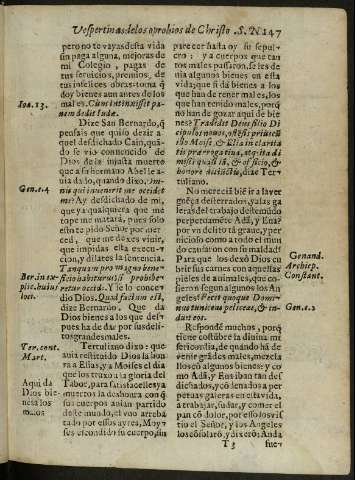 Vespertinas de los oprobios de Christo. S. N 247
pero no te vayas desta vida
sin paga alguna, mejoras de
mi Colegio, pagas de
tus seruicios, premios, de
tus infelices obras: toma q̃
doy bienes aun antes de los
Ioa. 13.
males. Cum intinxisset pa-
nem dedit Iudæ.
Dize San Bernardo, q̃
pensais que quiso dezir a
quel desdichado Cain, quã-
do se vio conuencido de
Dios de la injusta muerte
que a su hermano Abel le a-
uia dado, quando dixo,
Gen. c. 4
qui inuenerit me occidet
me? Ay desdichado de mi,
que ya qualquiera que me
tope me matará, pues solo
esto te pido Señor por mer-
ced, que me dexes viuir,
que impidas esta execu-
cion, y dilates la sentencia.
Tanquam pro magno bene-
Ber. in ex
ficio habiturus si prohibe-
plic. huius
retur occidi. Y se lo conce-
loci.
dio Dios. Quod factum est,
dize Bernardo. Que da
Dios bienes a los que des-
pues ha de dar por sus deli-
tos grandes males.
Ter. cont.
Mart.
Tertuliano dixo: que
auia restituido Dios la hon-
ra a Elias, y a Moises el dia
que los truxo a la gloria del
Aqui da
Tabor, para satisfacelles ya
Dios bie-
muertos la deshonra con q̃
nes a los
sus cuerpos auian partido
malos
deste mundo, el vno arreba
tado por essos ayres, Moy-
ses escondido su cuerpo, sin
parecer hasta oy su sepul-
cro: y a cuerpos que tan
tos males passaron, se les de
uia algunos bienes en esta
vida; que si da bienes a los
que han de tener males, los
que han tenido males, porq̃
no han de gozar aqui de bie-
nes? Tradidit Deus filio Di
scipulos nouos, ostẽsis prius cũ
illo Moysi, & Elia in clarita
tis prærogatiua, atq̃ ita di
missi quasi iã, & officio, &
honore dissolutis, dize Ter
tuliano.
No merecia biẽ ir a la ver-
gọẽça desterrados, y a las ga
leras del trabajo del mundo
perpetuamẽte Adã, y Eua?
por vn delito tã graue, y per
nicioso como a todo el mun
do causaron con su maldad?
Para que los dexò Dios cu
Genand.
brir sus carnes con aquellas
Archiep.
pieles de animales, que co-
Constant.
sieron segun algunos los An
geles? Fecit quoque Domi-
Gen. c. 3
nus tunicas peliceas, & in-
duit eos.
Responde muchos, porq̃
tiene costũbre la diuina mi
sericordia, de quãdo ha de
venir grãdes males, mezcla
los cõ algunos bienes: y co
mo Adã, y Eua iban tan des
dichados, y cõdenados a per
petuas galeras en esta vida,
a trabajar, sudar, y comer el
pan cõ dolor, por esso los vis
tio el Señor, y los Angeles
los cõsolarõ, y dixerõ: Anda
T 3 fuer-